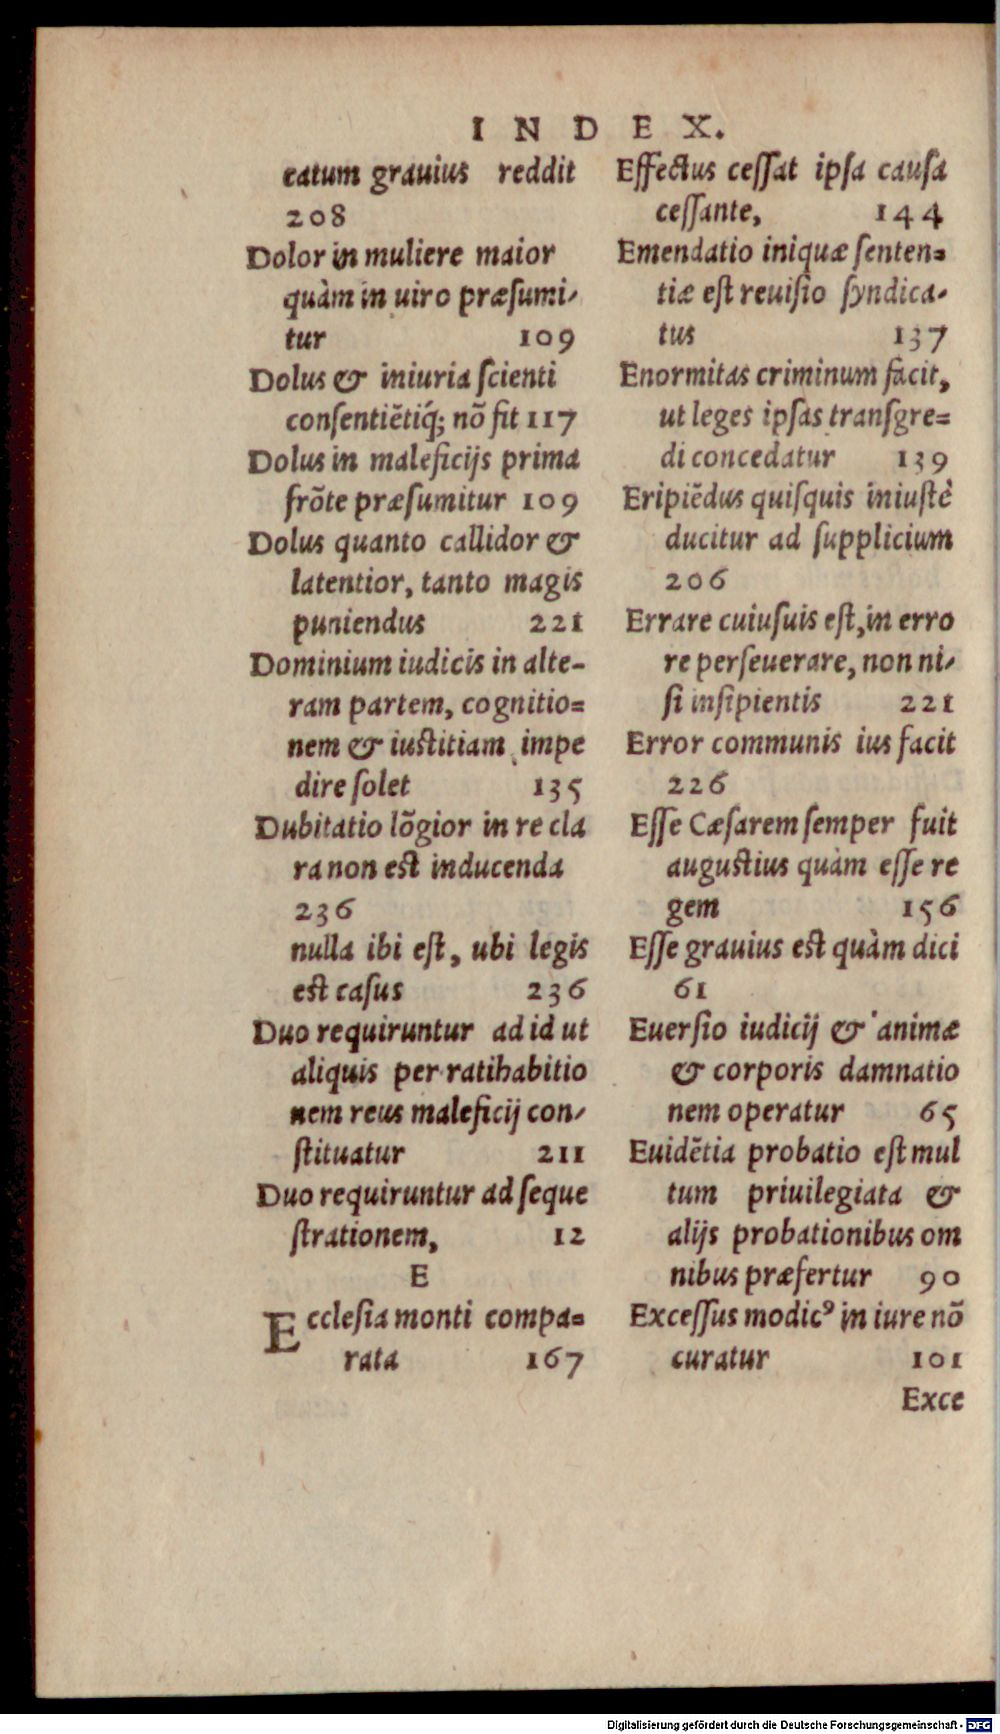 INDEX.
catum grauius reddit
208
Dolor in muliere maior
quàm in uiro præsumi-
tur 109
Dolus & iniuria scienti
consentiẽtiq́; nõ fit 117
Dolus in maleficijs prima
frõte præsumitur 109
Dolus quanto callidor &
latentior, tanto magis
puniendus 221
Dominium iudicis in alte-
ram partem, cognitio=
nem & iustitiam impe
dire solet 135
Dubitatio lõgior in re cla
ra non est inducenda
236
nulla ibi est, ubi legis
est casus 236
Duo requiruntur ad id ut
aliquis per ratihabitio
nem reus maleficij con-
stituatur 211
Duo requiruntur ad seque
strationem, 12
E
Ecclesia monti compa=
rata 167
Effectus cessat ipsa causa
cessante, 144
Emendatio iniquæ senten=
tiæ est reuisio syndica-
tus 137
Enormitas criminum facit,
ut leges ipsas transgre=
di concedatur 139
Eripiẽdus quisquis iniustè
ducitur ad supplicium
206
Errare cuiusuis est, in erro
re perseuerare, non ni-
si insipientis 221
Error communis ius facit
226
Esse Cæsarem semper fuit
augustius quàm esse re
gem 156
Esse grauius est quàm dici
61
Euersio iudicij & animæ
& corporis damnatio
nem operatur 65
Euidẽtia probatio est mul
tum priuilegiata &
alijs probationibus om
nibus præfertur 90
Excessus modicꝰ in iure nõ
curatur 101
Exce
Digitalisierung gefördert durch die Deutsche Forschungsgemeinschaft - DFG